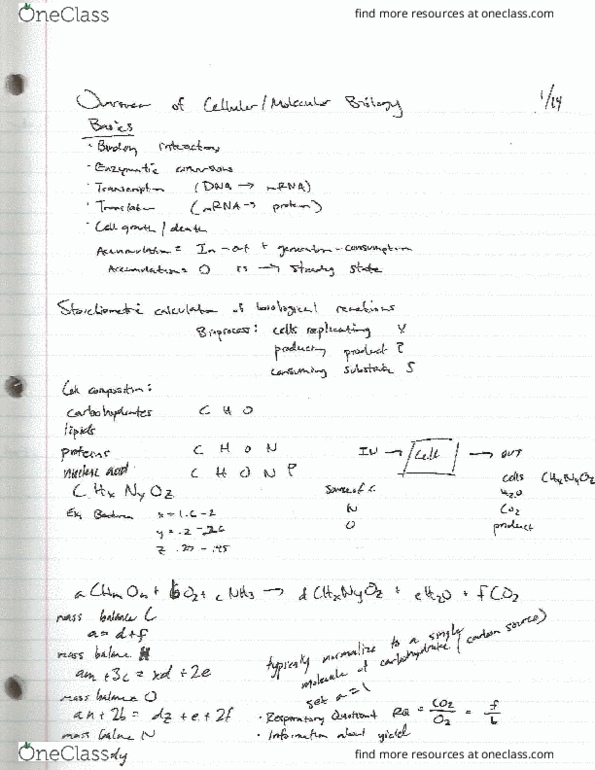 OneClass
find more resources at oneclass.com
Overview of Cellular/Molecular Biology 1/14
Basics
· Binding interactions
· Enzymatic conversions
· Transcription (DNA → mRNA)
· Translation (mRNA → protein)
· Cell growth/death
Accumulation = In - out + generation - consumption
Accumulation = 0 is → steady state
Stoichiometric calculation of biological reactions
Bioprocess: cells replicating X
producing product P
consuming substrate S
Cell composition:
carbohydrates C H O
lipids
proteins C H O N
nucleic acid C H O N P
CHxNyOz
IN → Cell → OUT
Source of C
N
O
cells CHxNyOz
H2O
CO2
product
Ex, Bacteria x = 1.6-2
y = .2-.26
z .27-.45
aCHmOn + bO2 + cNH3 → dCHxNyOz + eH2O + fCO2
mass balance C
a = d+f
mass balance H
am + 3c = xd + 2e
mass balance O
an + 2b = dz + e + 2f
mass balance N
typically normalize to a single
molecule of carbohydrate (carbon source)
set a=1
· Respiratory Quotient RQ = CO2/O2 = f/b
· Information about yield
OneClass
find more resources at oneclass.com